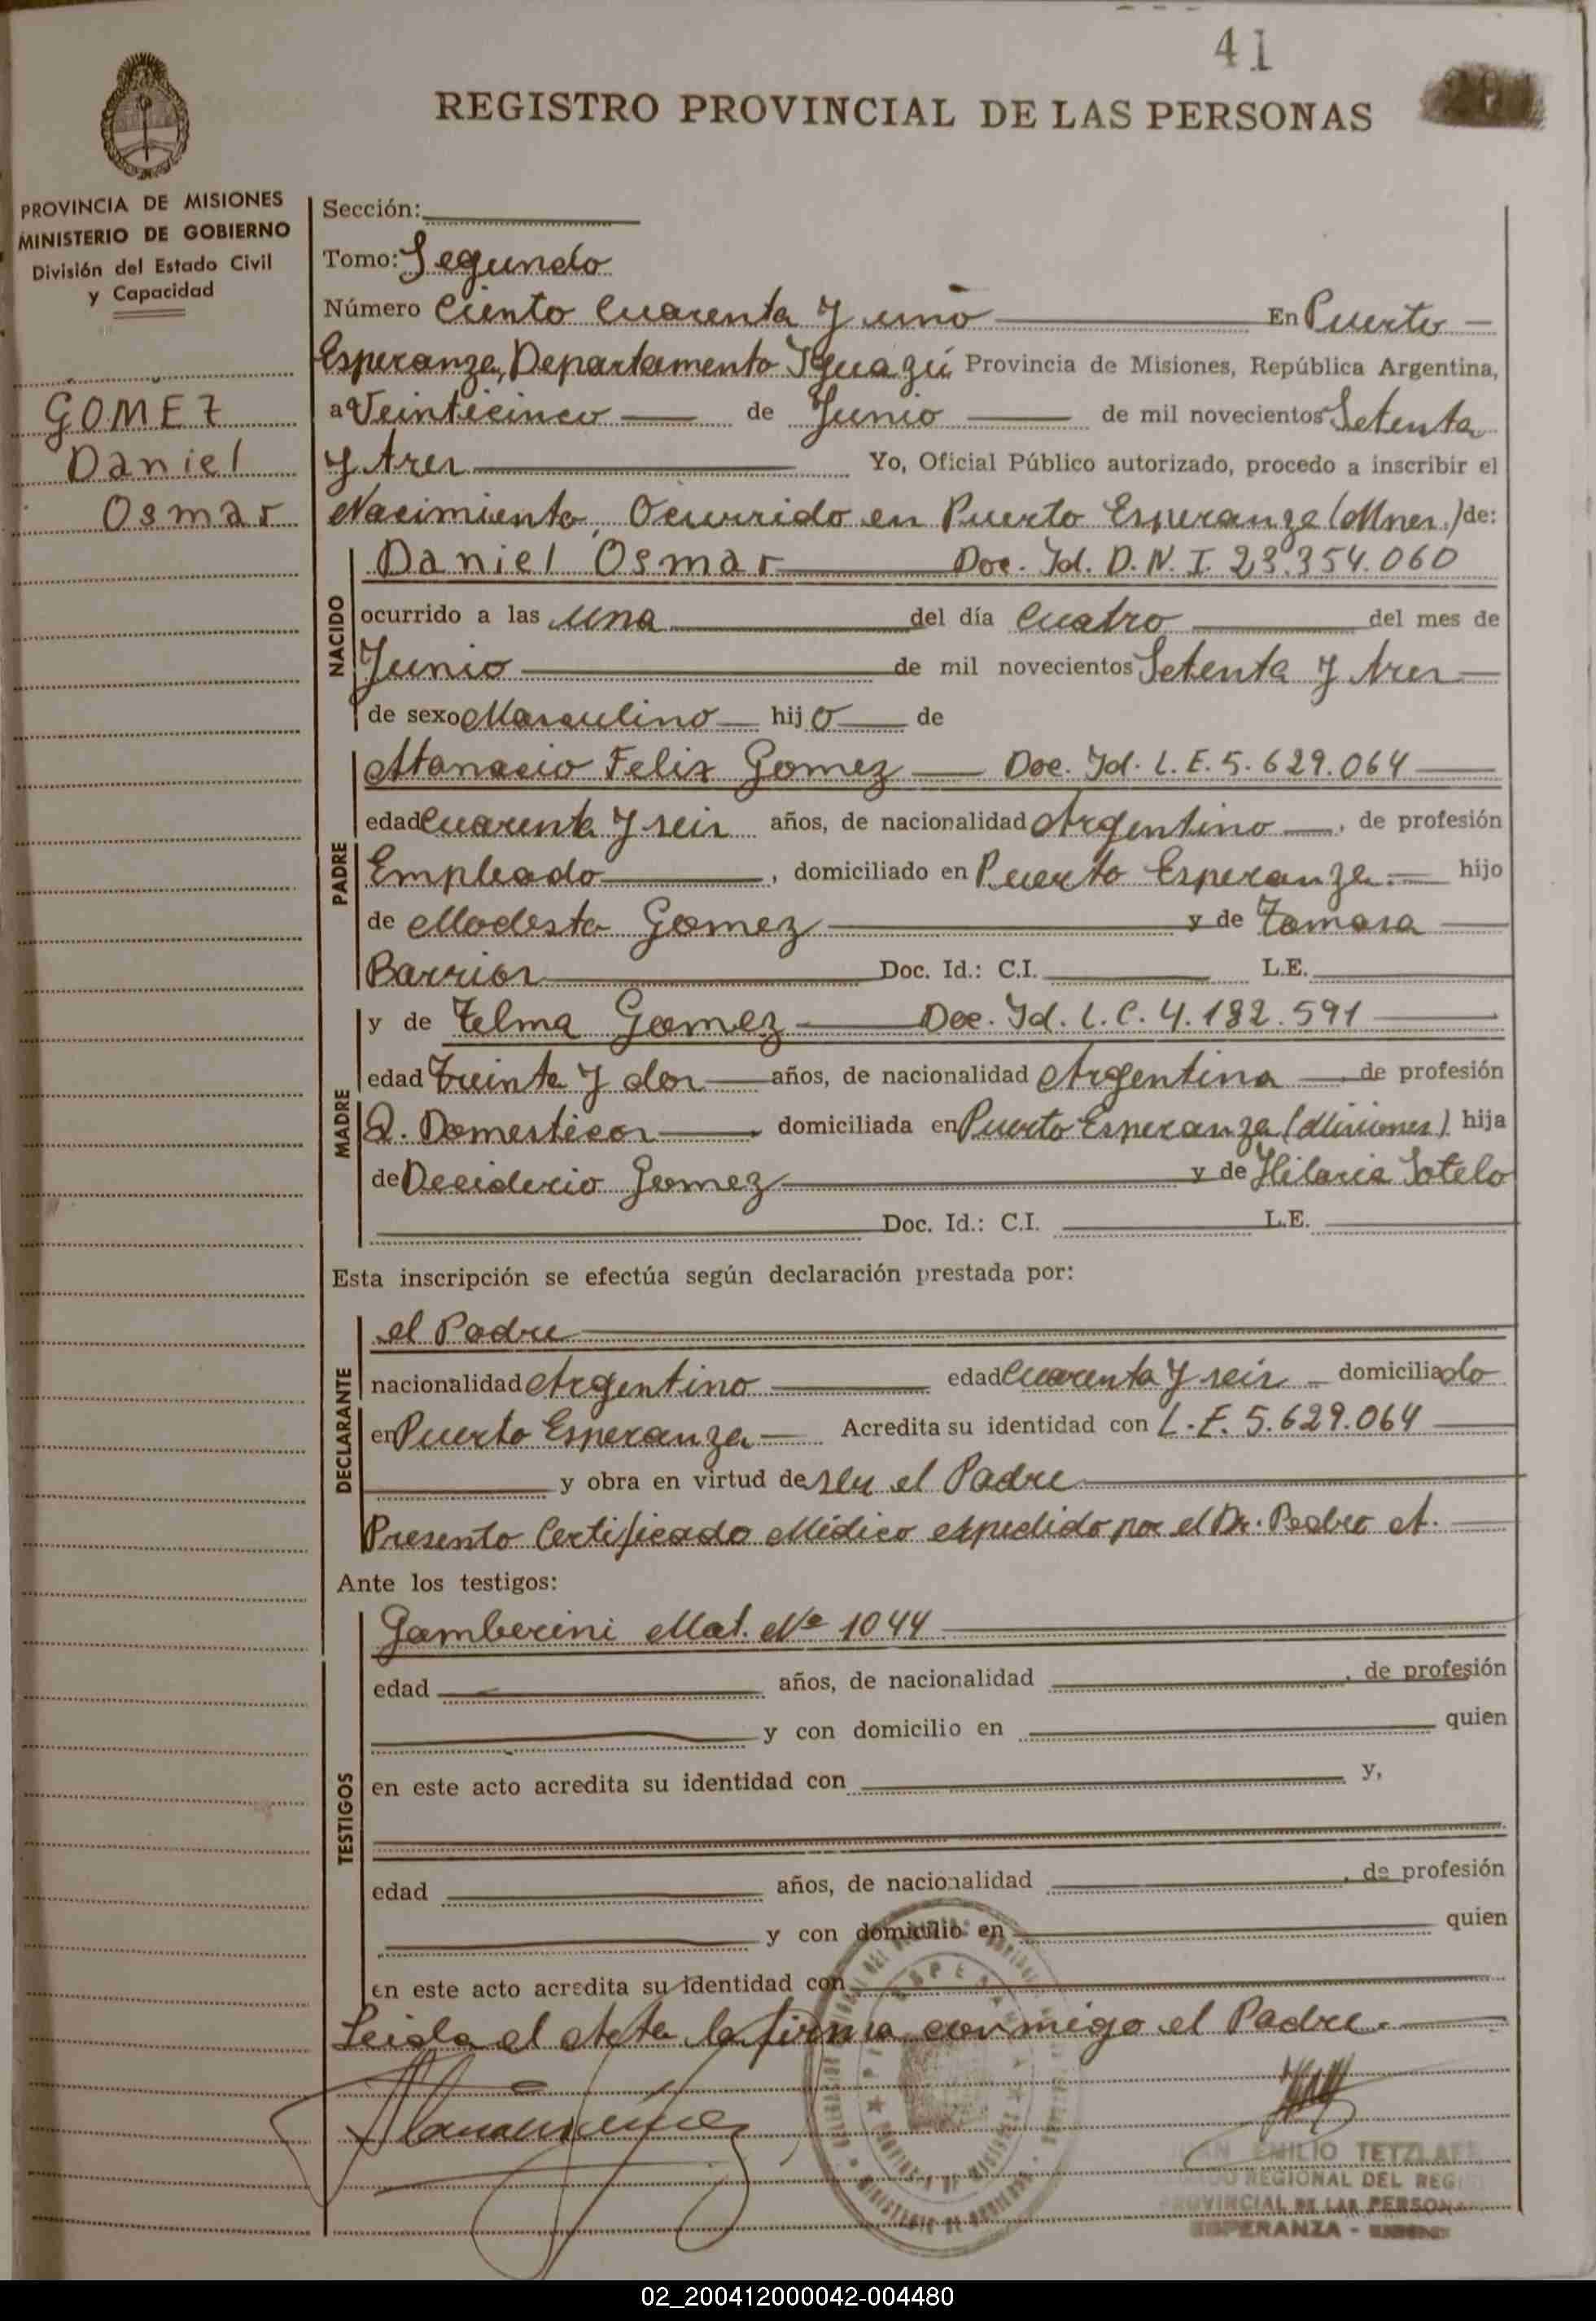 41
REGISTRO PROVINCIAL DE LAS PERSONAS
PROVINCIA DE MISIONES
MINISTERIO DE GOBIERNO
División del Estado Civil
y Capacidad
GOMEZ
Daniel
Osmar
Sección:
Tomo: Segundo
Número Ciento Cuarenta y uno En Puerto
Esperanza, Departamento Iguazú Provincia de Misiones, República Argentina,
a Veinticinco de Junio de mil novecientos Setenta
y tres Yo, Oficial Público autorizado, procedo a inscribir el
Nacimiento, Ocurrido en Puerto Esperanza (Mnes.) de:
NACIDO
Daniel Osmar Doc. Id. D.N.I. 23.354.060
ocurrido a las una del día Cuatro del mes de
Junio de mil novecientos Setenta y tres
de sexo Masculino hijo de
PADRE
Atanacio Felix Gomez Doc. Id. L.E. 5.629.064
edad Cuarenta y seis años, de nacionalidad Argentino, de profesión
Empleado, domiciliado en Puerto Esperanza.- hijo
de Modesto Gomez y de Tomasa
Barrios Doc. Id.: C.I. L.E.
MADRE
y de Telma Gomez Doc. Id. L.C. 4.182.591
edad Treinta y dos años, de nacionalidad Argentina de profesión
Q. Domesticos domiciliada en Puerto Esperanza (Misiones) hija
de Deciderio Gomez y de Hilaria Sotelo
Doc. Id.: C.I. L.E.
Esta inscripción se efectúa según declaración prestada por:
DECLARANTE
el Padre
nacionalidad Argentino edad Cuarenta y seis domiciliado
en Puerto Esperanza Acredita su identidad con L.E. 5.629.064
y obra en virtud de ser el Padre
Presento Certificado Médico expedido por el Dr. Pedro A.
Ante los testigos:
TESTIGOS
Gamberini Mat. Nº 1044
edad años, de nacionalidad, de profesión
y con domicilio en quien
en este acto acredita su identidad con y,
edad años, de nacionalidad, de profesión
y con domicilio en quien
en este acto acredita su identidad con
Leida el Acta la firma conmigo el Padre.
EMILIO TETZLAFF
REGIONAL DEL REG
PROVINCIAL DE LAS PERSONAS
ESPERANZA -
02_200412000042-004480